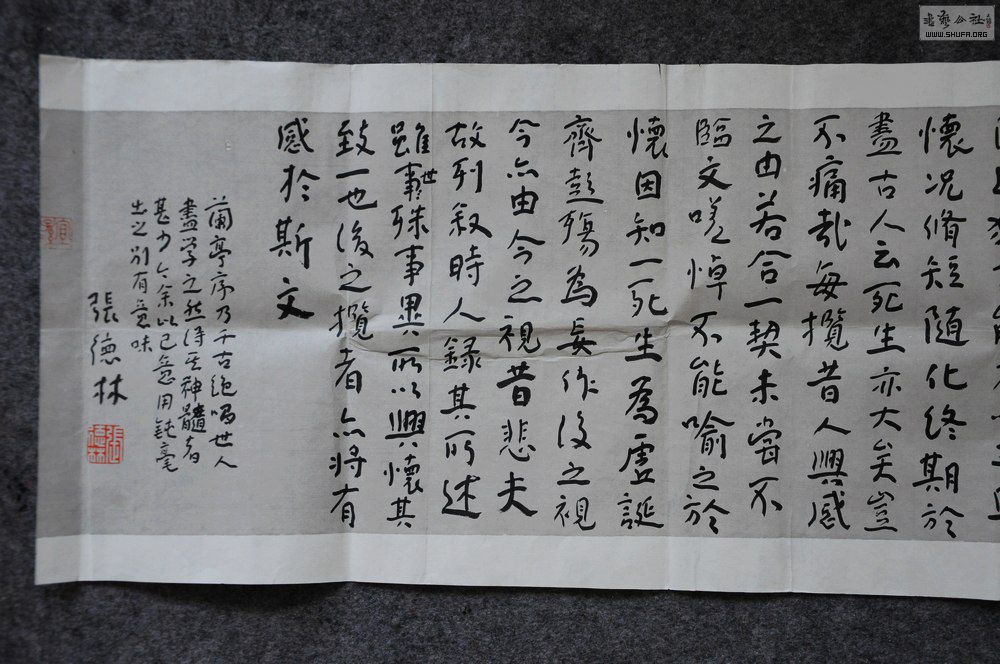 懷況脩短随化终期於
盡古人云死生亦大矣豈
不痛哉每攬昔人興感
之由若合一契未嘗不
臨文嗟悼不能喻之於
懷因知一死生為虚誕
齊彭殤為妄作後之視
今亦由今之視昔悲夫
故列叙時人錄其所述
雖世事殊事異所以興懷其
致一也後之攬者亦将有
感於斯文
蘭亭序乃千古絶唱世人
盡学之然得其神髓者
甚少今余以己意用鈍毫
出之别有意味
張德林
張德林
書藝公社
WWW.SHUFA.ORG